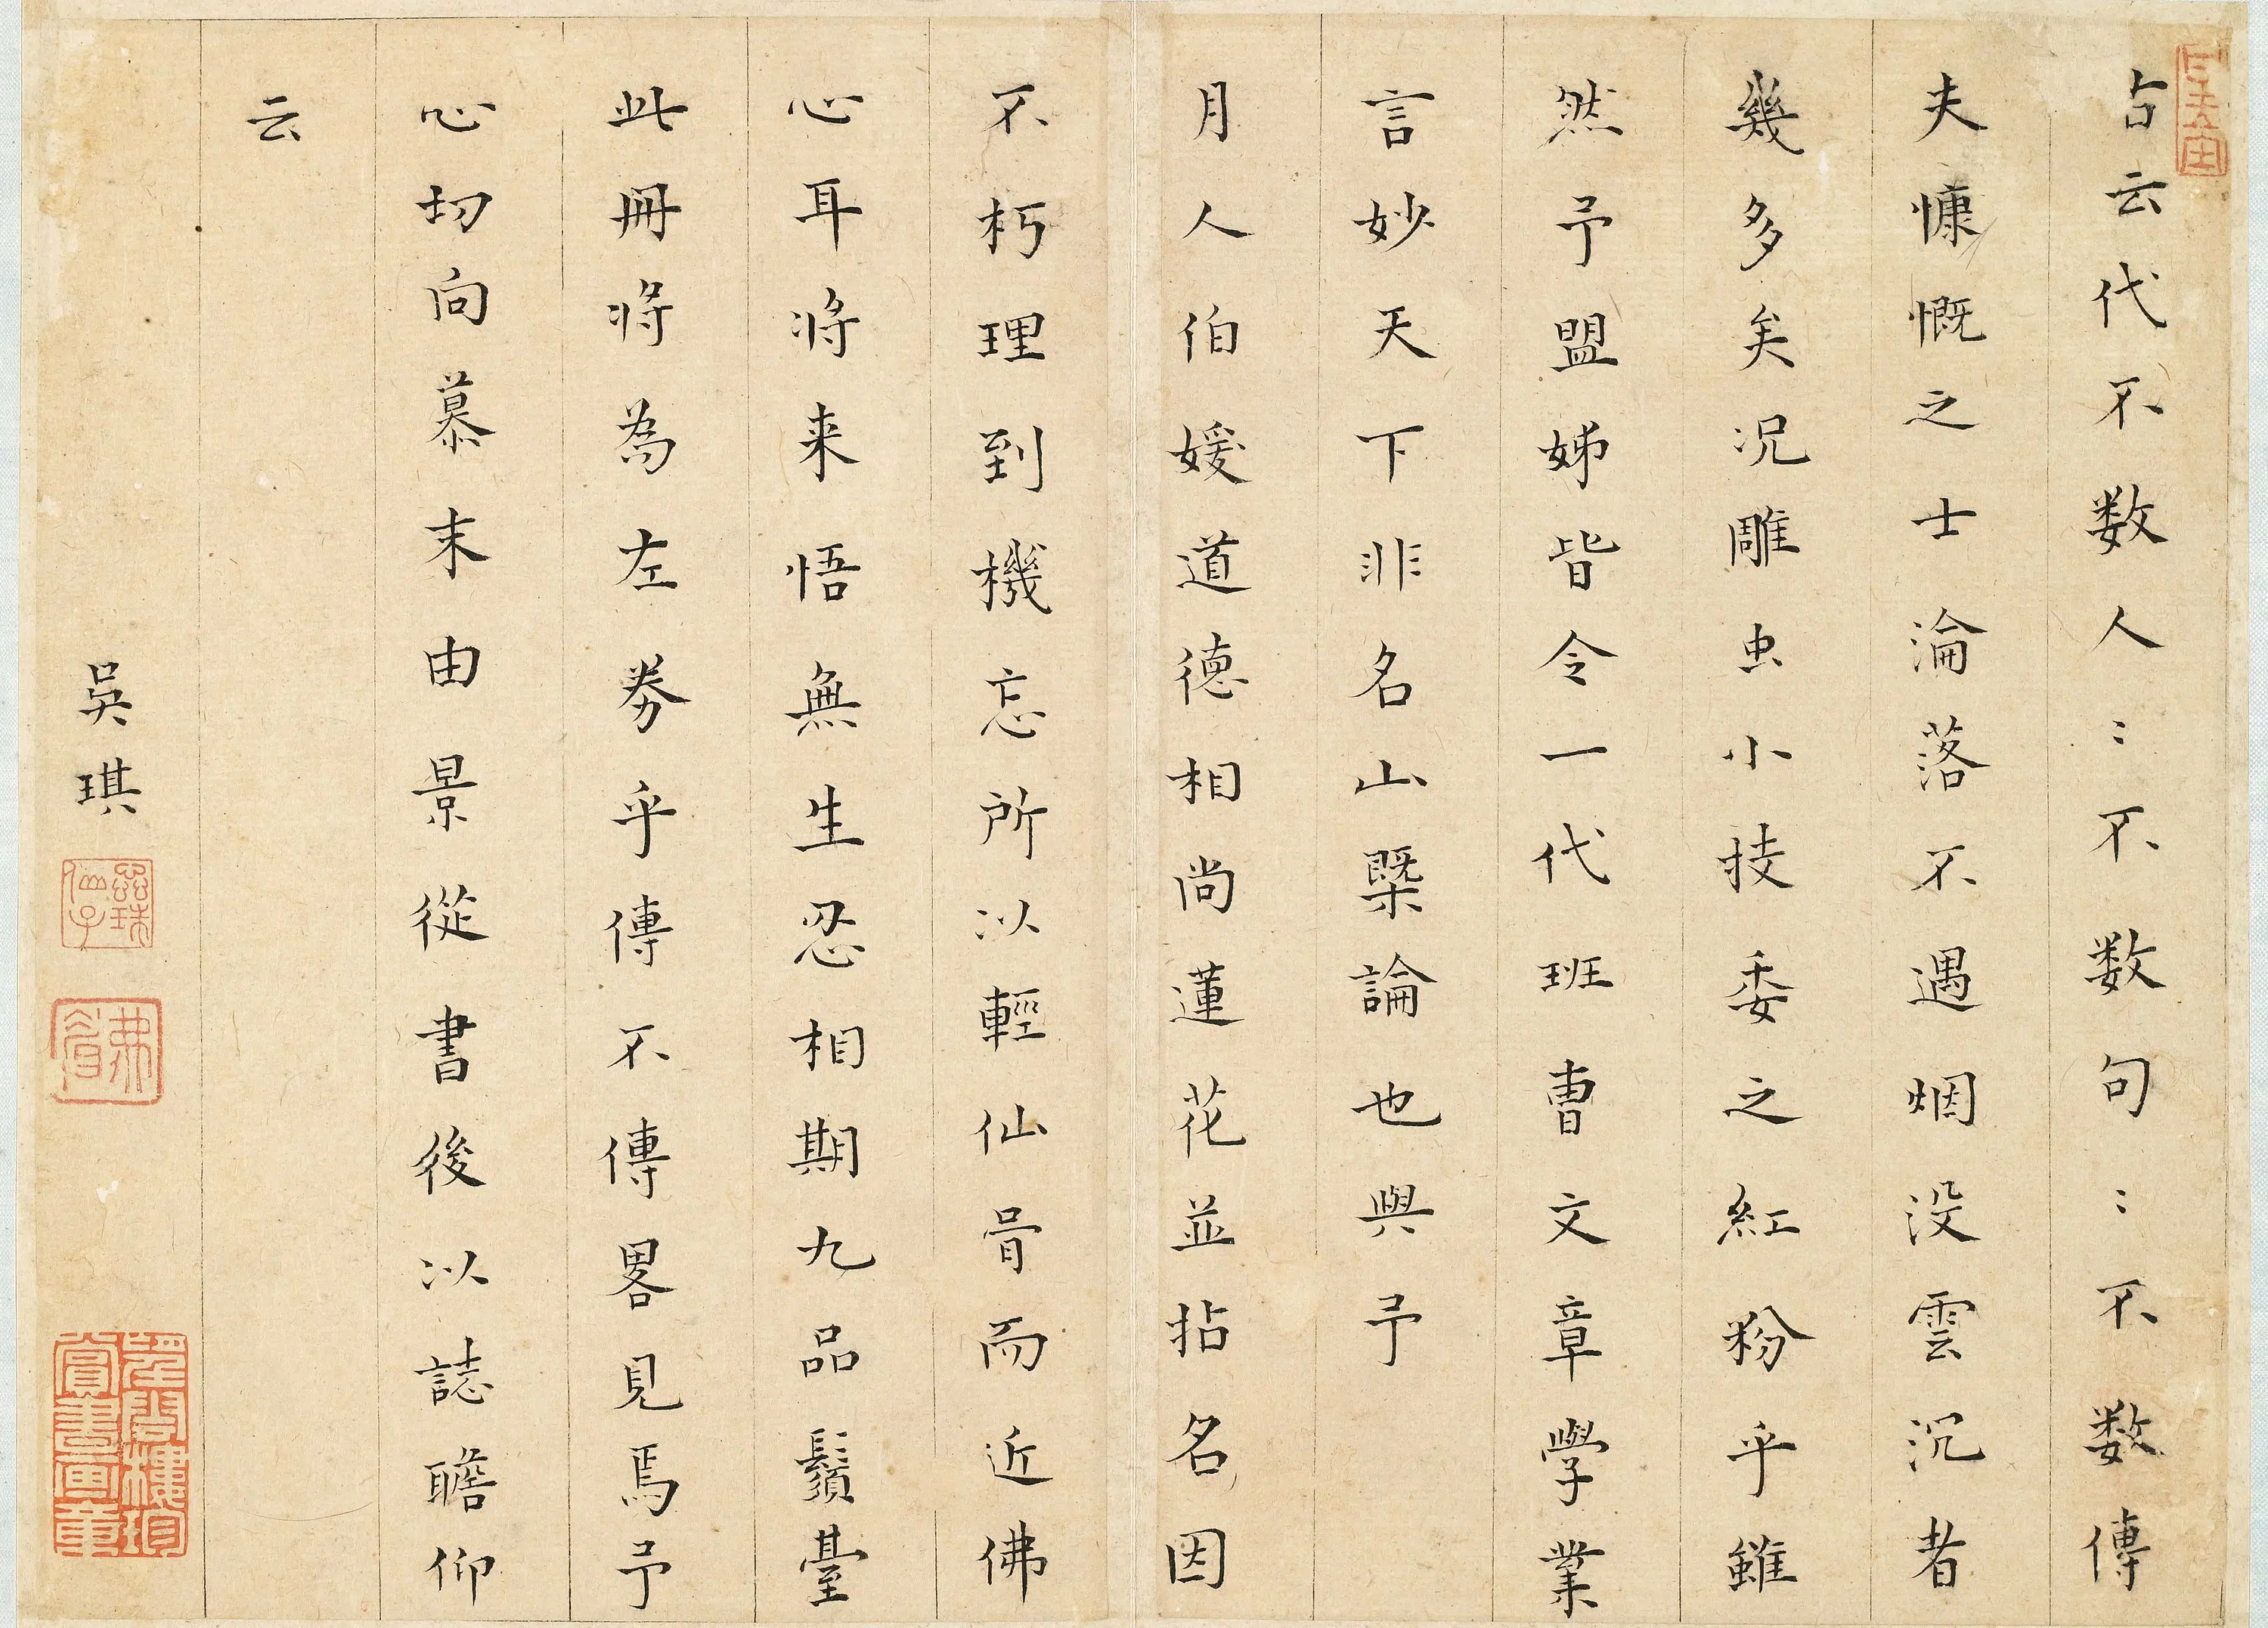 古云代不数人〻不数句〻不数傳
夫慷慨之士淪落不遇烟没雲沉者
幾多矣况雕虫小技委之紅粉乎雖
然予盟姊皆令一代班曹文章學業
言妙天下非名山槩論也與予
月人伯媛道德相尚蓮花並拈名因
不朽理到機忘所以輕仙骨而近佛
心耳將来悟無生忍相期九品鬚臺
此冊將為左券乎傳不傳畧見焉予
心切向慕末由景從書後以誌瞻仰
云
吳琪